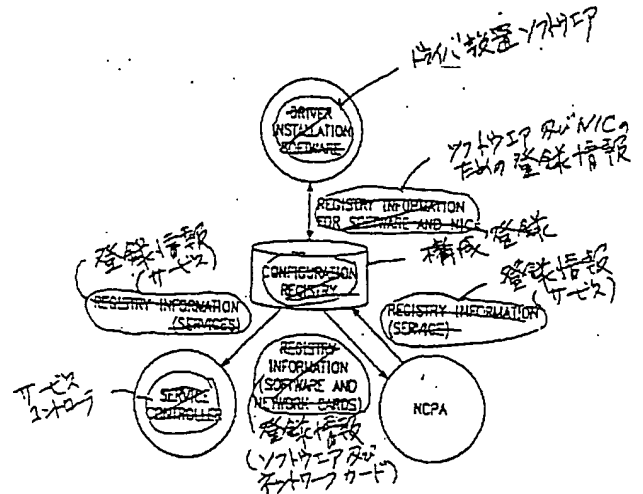 ドライバ設置ソフトウェア
DRIVER
INSTALLATION
SOFTWARE
ソフトウェア及びNICの
ための登録情報
REGISTRY INFORMATION
FOR SOFTWARE AND NIC
構成登録
登録情報
(サービス)
REGISTRY INFORMATION
(SERVICES)
CONFIGURATION
REGISTRY
登録情報
(サービス)
REGISTRY INFORMATION
(SERVICE)
サービス
コントローラ
SERVICE
CONTROLLER
REGISTRY
INFORMATION
(SOFTWARE AND
NETWORK CARDS)
登録情報
(ソフトウェア及び
ネットワークカード)
NCPA